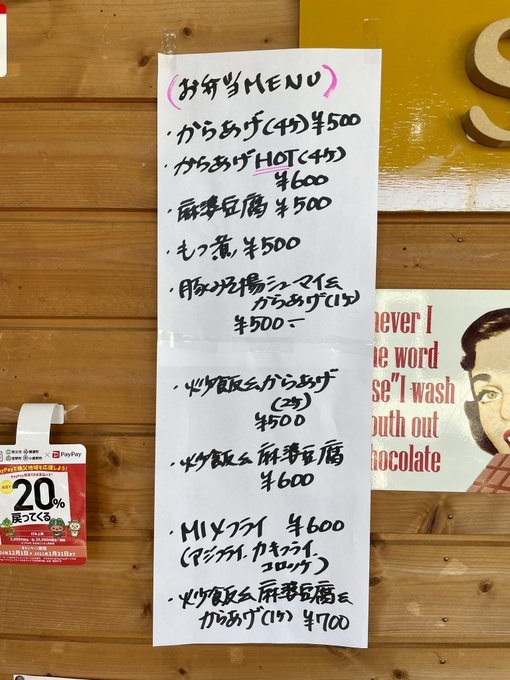 (お弁当MENU)
・からあげ(4ヶ)¥500
・からあげHOT(4ヶ)
¥600
・麻婆豆腐 ¥500
・もつ煮 ¥500
・豚みそ揚シューマイ&
からあげ(1ヶ)
¥500-
・炒飯&からあげ
(2ヶ)
¥500
・炒飯&麻婆豆腐
¥600
・MIXフライ ¥600
(アジフライ.カキフライ.
コロッケ)
・炒飯&麻婆豆腐&
からあげ(1ヶ) ¥700
S
never I
he word
se" I wash
outh out
hocolate
× PayPay
PayPayで秩父地域を応援しよう!
20%
戻ってくる
キャンペーン期間